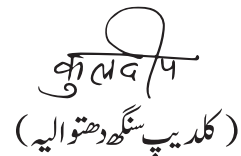 कुलदीप
(کلدیپ سنگھ دھتوالیہ)